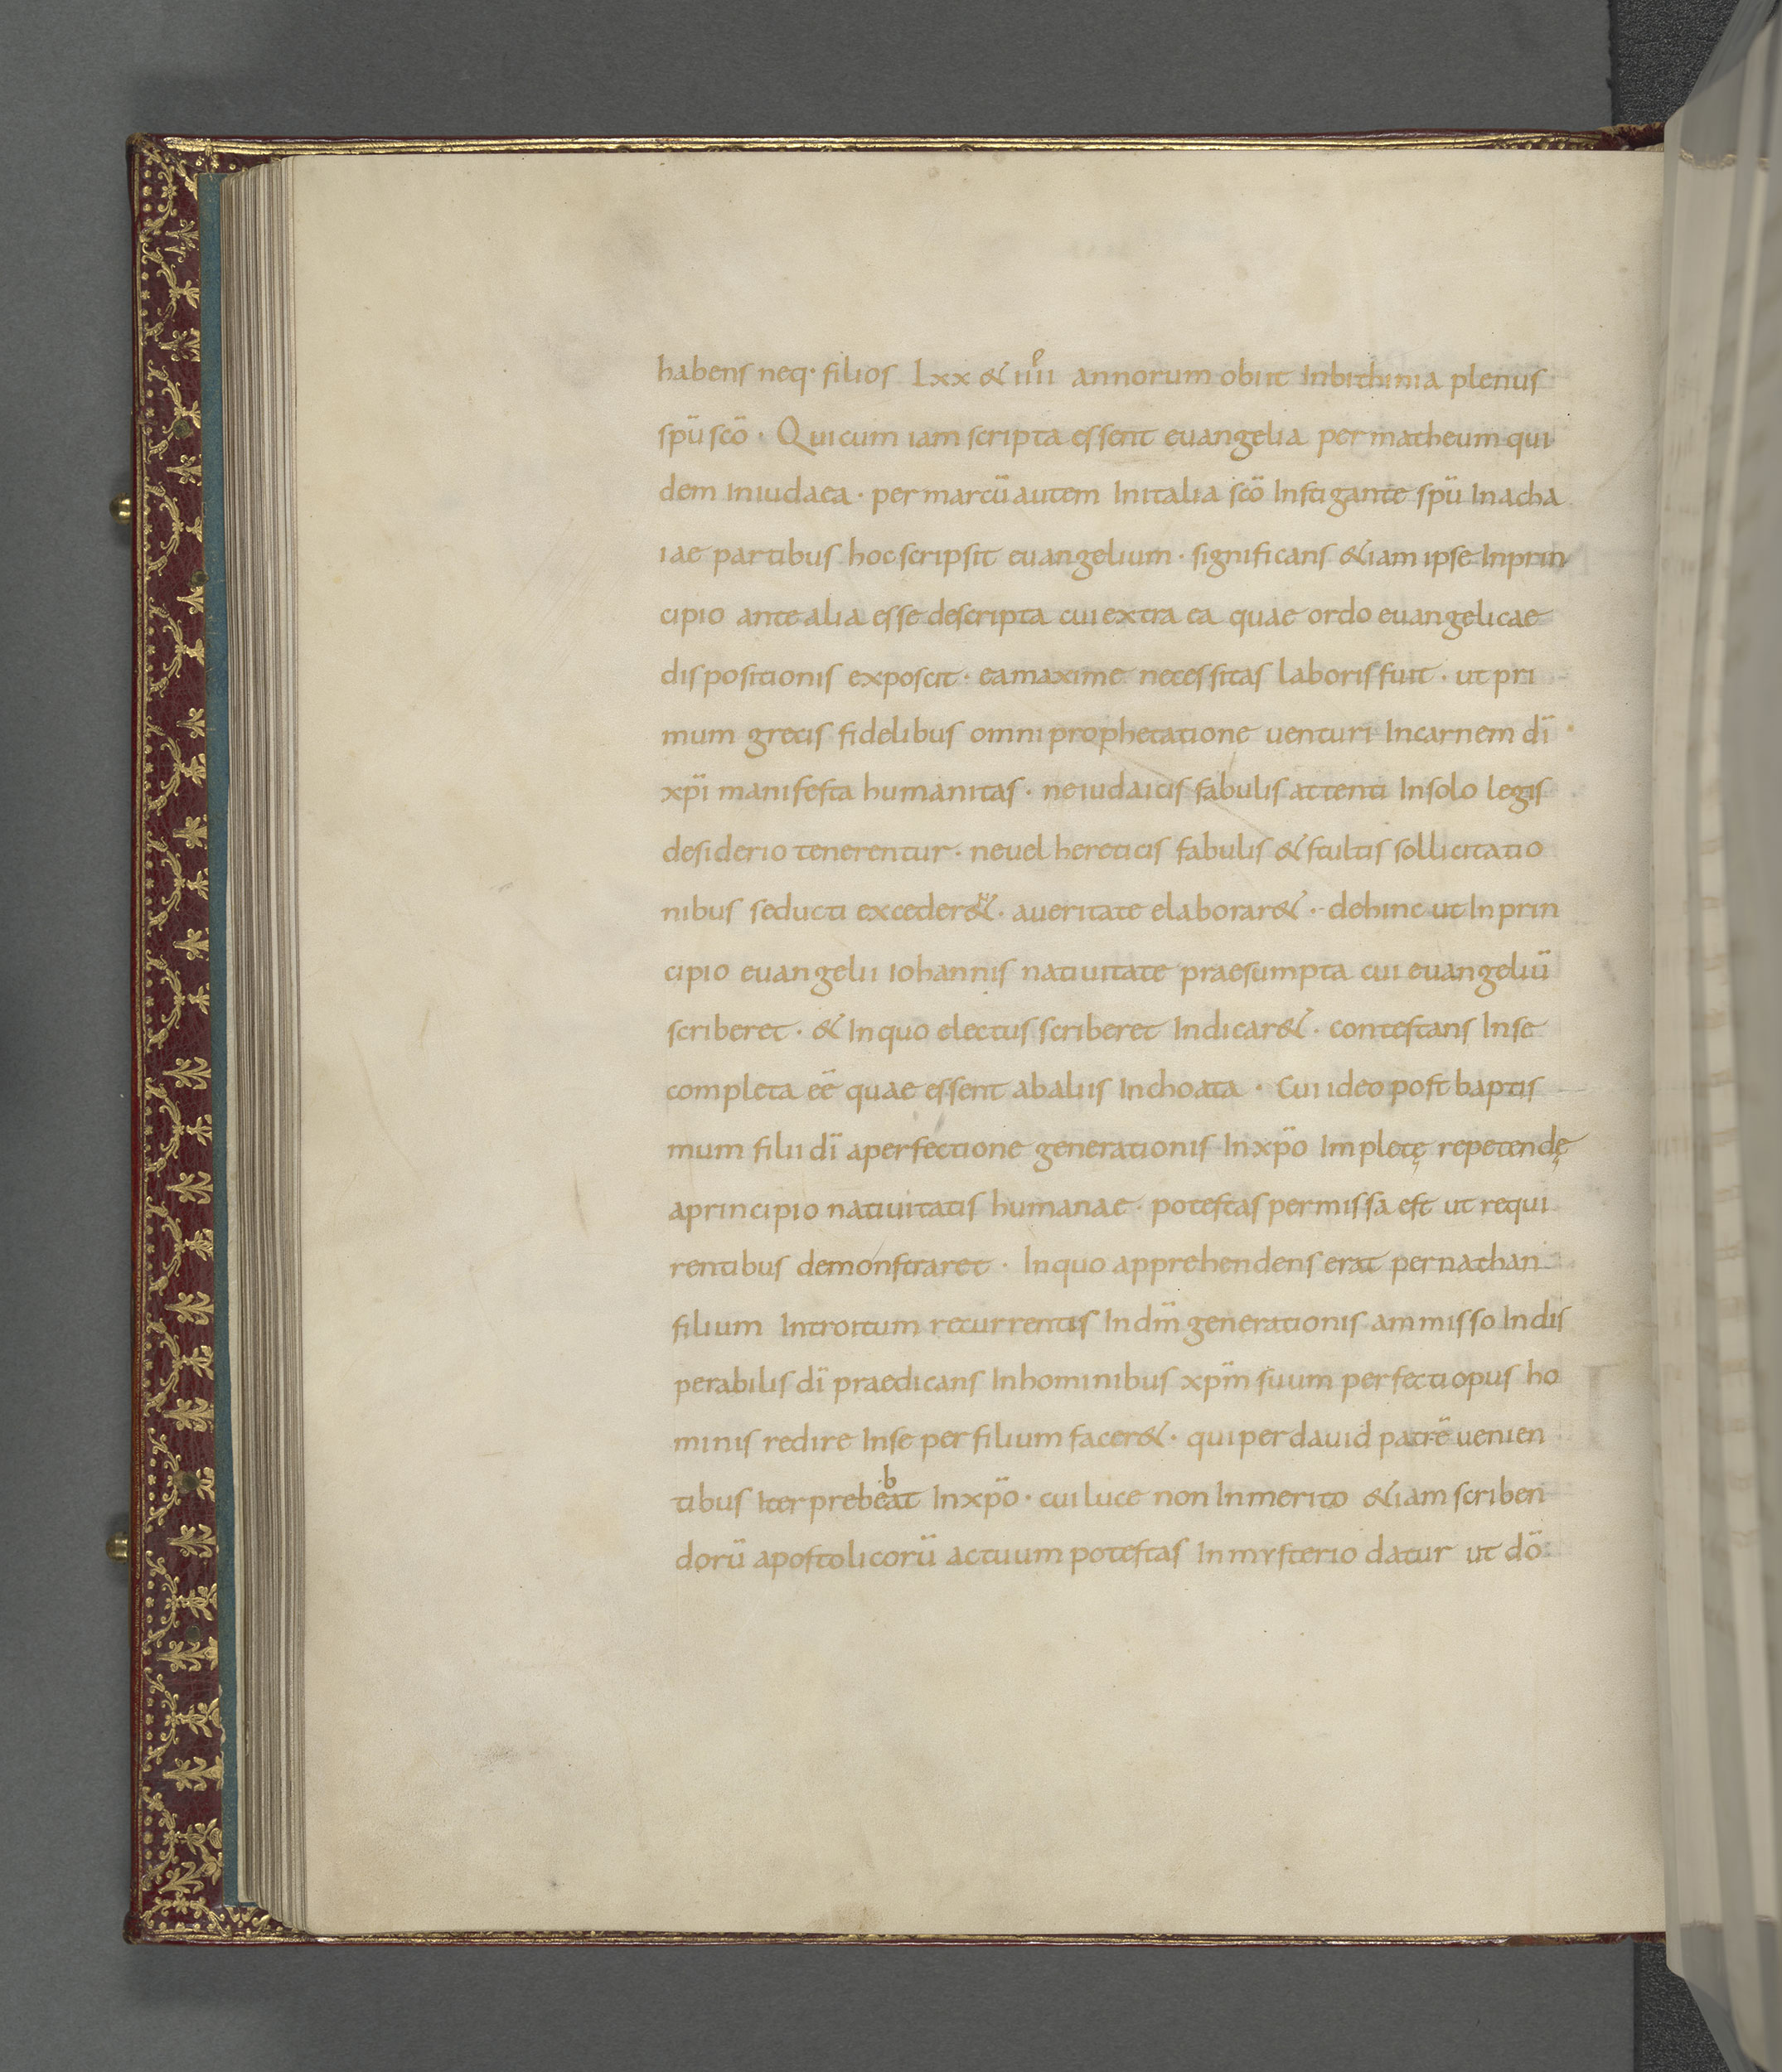 habens neq· filios Lxx & iiiiͤ annorum obiit Inbithinia plenus
spū scō · Qui cum iam scripta essent euangelia per matheum qui
dem In iudaea · per marcū autem In italia scō Instigante spū In acha
iae partibus hoc scripsit euangelium · significans &iam ipse Inprin
cipio ante alia esse descripta cui extra ea quae ordo euangelicae
dispositionis exposcit · ea maxime necessitas laboris fuit · ut pri
mum grecis fidelibus omni prophetatione uenturi Incarnem dī
xpī manifesta humanitas · ne iudaicis fabulis attenti Insolo legis
desiderio tenerentur · neuel hereticis fabulis & stultis sollicitatio
nibus seducti exceder& · a ueritate elaborar& · dehinc ut Inprin
cipio euangelii iohannis natiuitate praesumpta cui euangeliū
scriberet · & Inquo electus scriberet Indicar& · contestans Inse
completa eē quae essent ab aliis Inchoata · Cui ideo post baptis
mum filii dī a perfectione generationis Inxpō Impletę repetendę
a principio natiuitatis humanae · potestas permissa est ut requi
rentibus demonstraret · Inquo apprehendens erat per nathan
filium Introitum recurrentis Indm̄ generationis ammisso Indis
perabilis dī praedicans Inhominibus xpm̄ suum perfecti opus ho
minis redire Inse per filium facer& · qui per dauid patrē uenien
tibus Iter prebebat Inxpō · cui luce non Inmerito &iam scriben
dorū apostolicorū actuum potestas Inmysterio datur ut dō